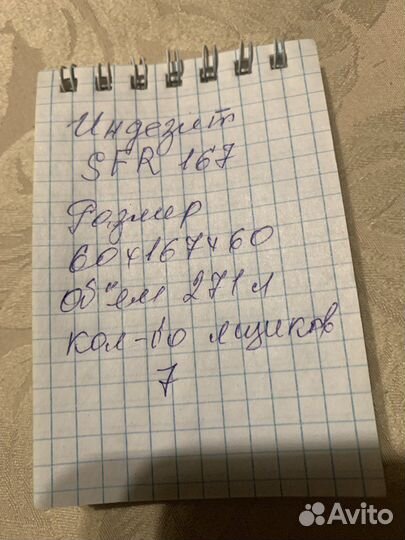 Индезит
SFR 167
Размер
60×167×60
Об"ем 271 л
кол-во ящиков
7
Avito